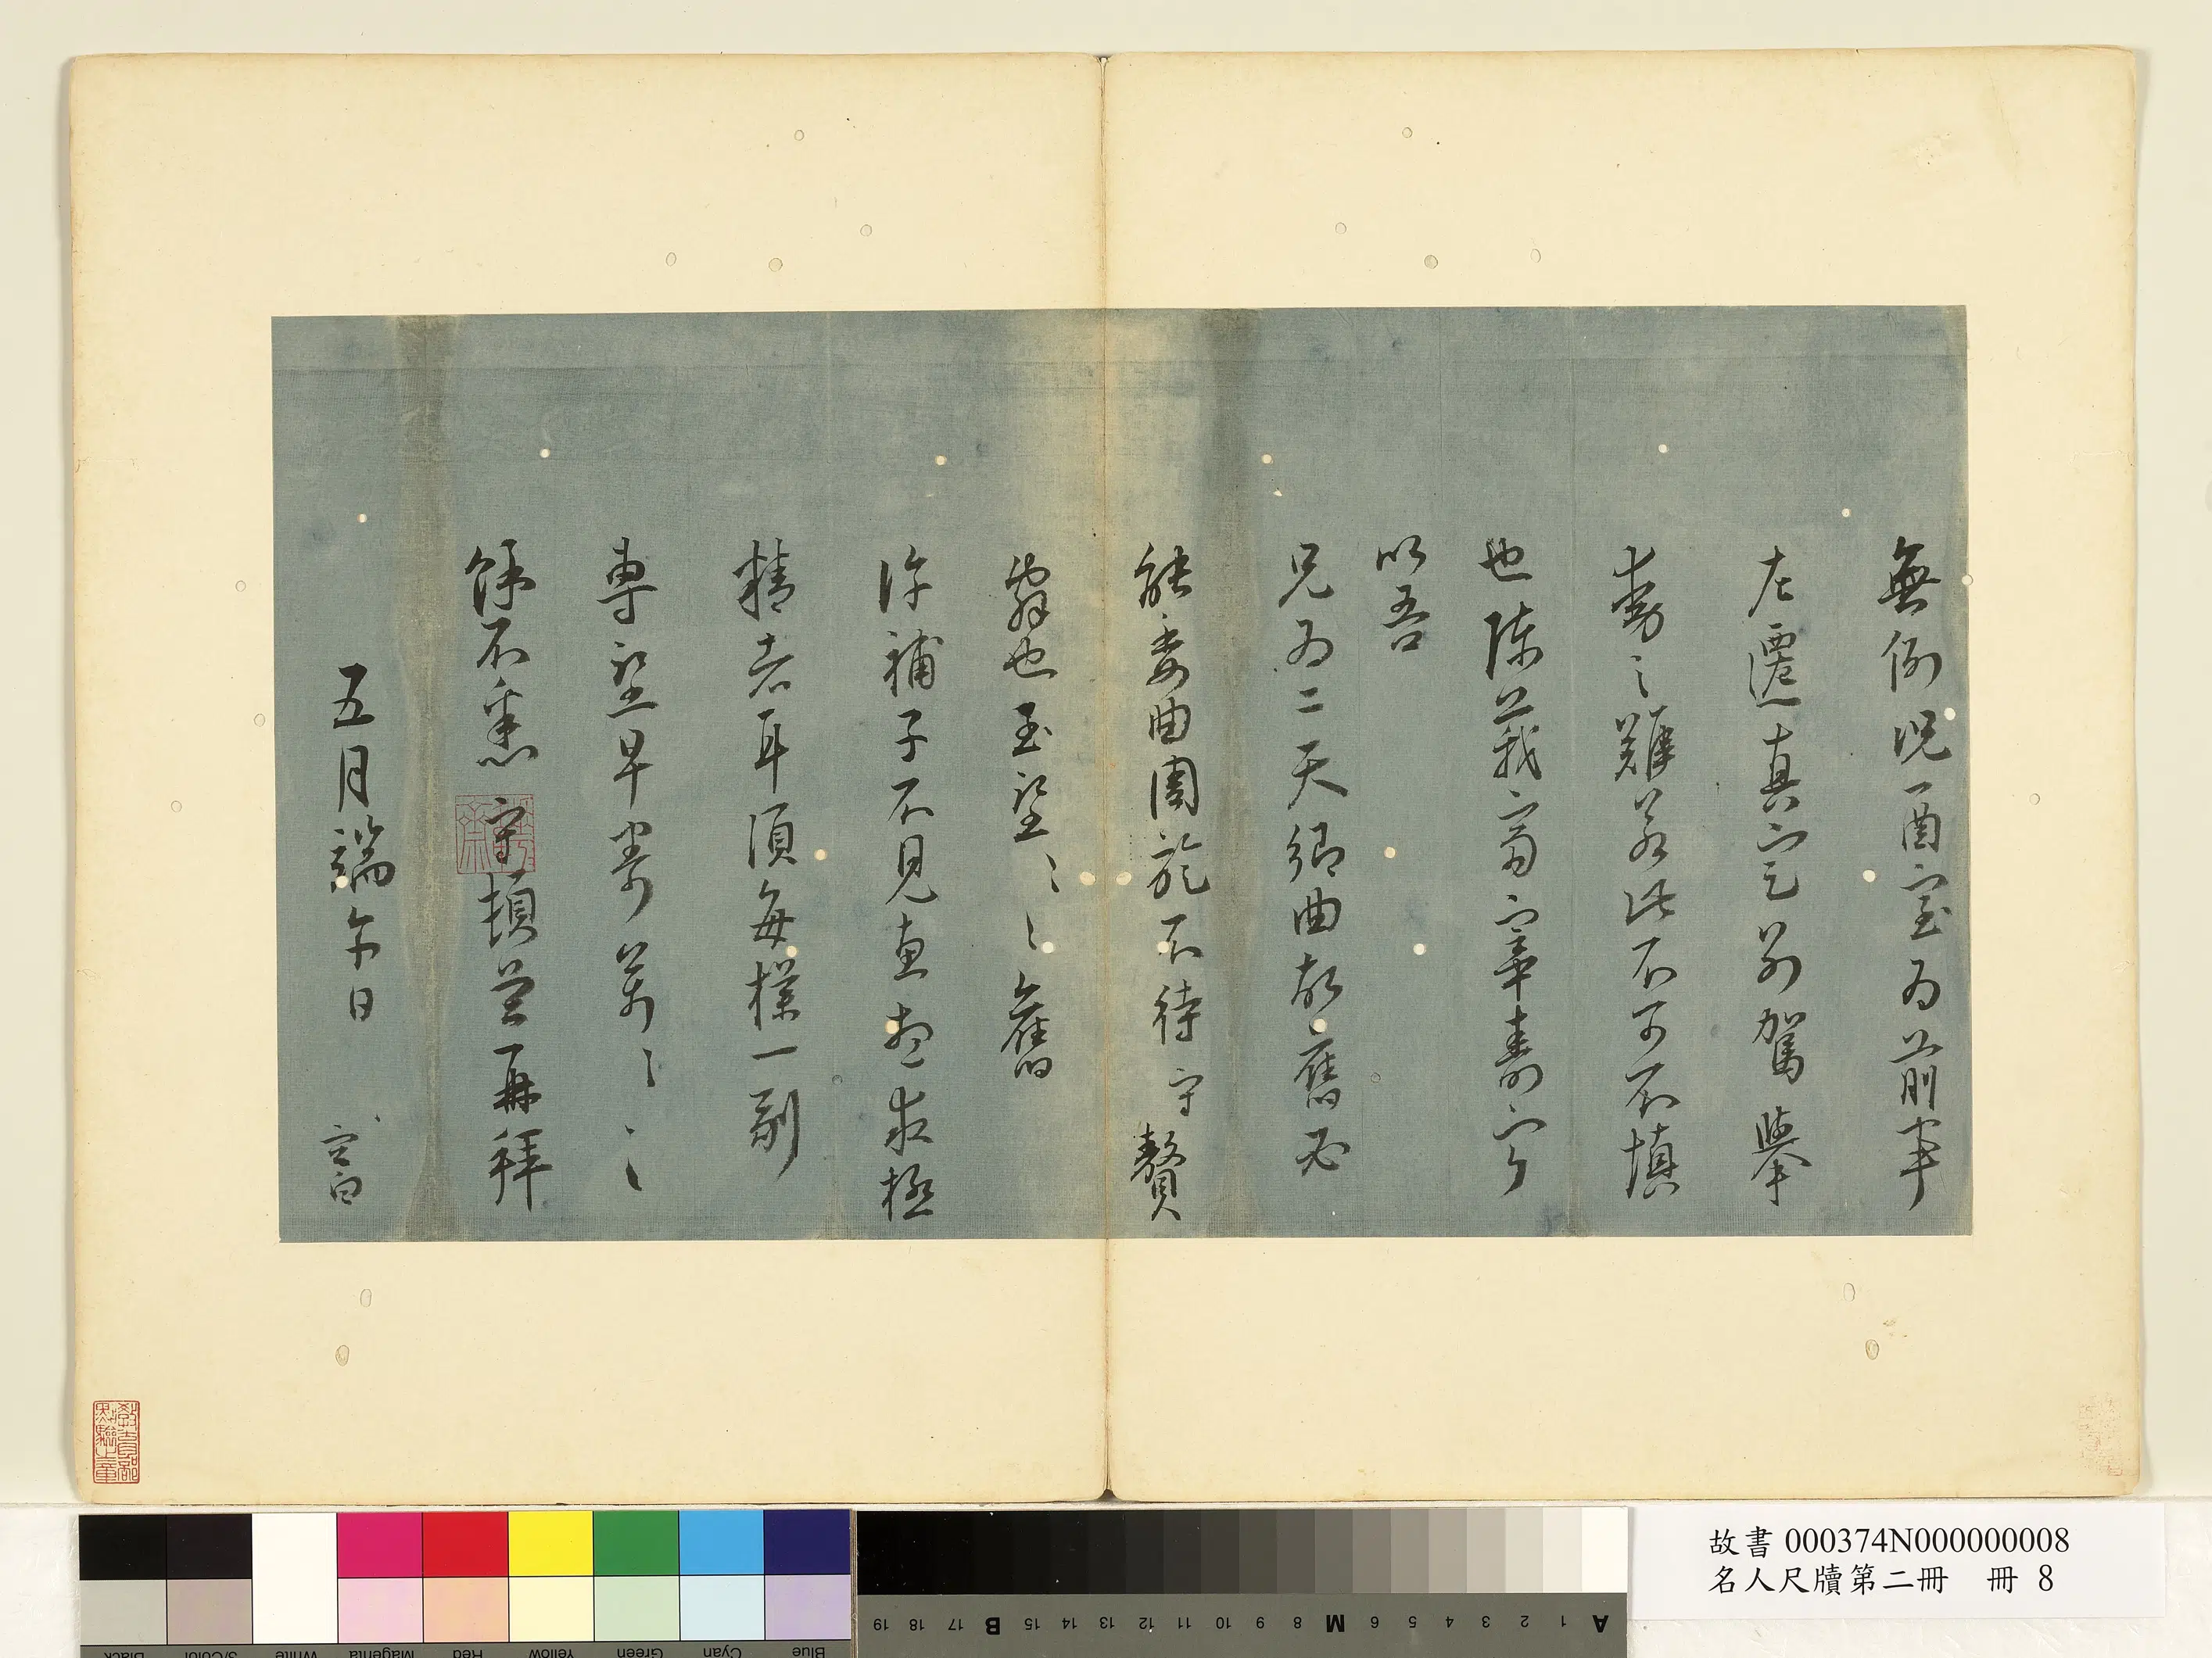 無例況一酉室為前事
左遷真定別駕舉
動之難若此不可不慎
也陳我齋寧壽字
以吾
兄為二天鄉曲故舊必
能委曲周旋不待守贅
辭也至望〻〻舊
許補子不見惠想求極
精者耳須每樣一副
專望早寄萬〻〻
餘不悉守頓首再拜
五月端午日
故書 000374N000000008
名人尺牘第二冊 冊 8
19 18 17 B 15 14 13 12 11 10 9 8 M 6 5 4 3 2 1 A
Black 3/Color White Magenta Red Yellow Green Cyan Blue